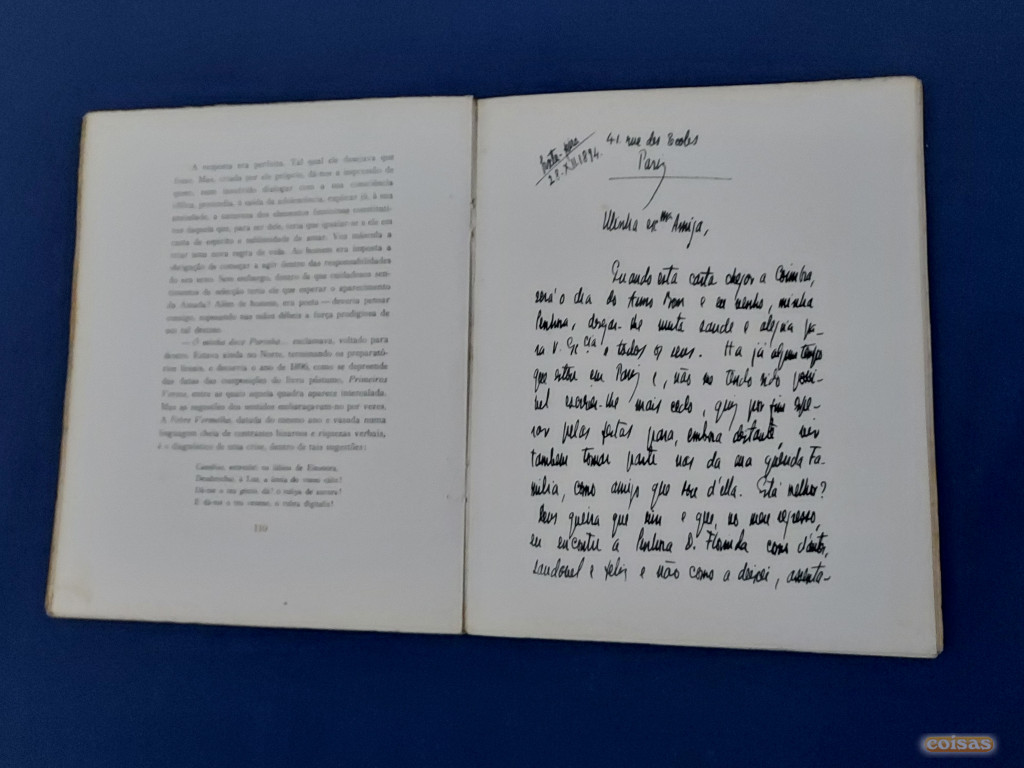 A resposta era perfeita. Tal qual ele desejava que
fosse. Mas, criada por ele próprio, dá-nos a impressão de
quem, num insofrido dialogar com a sua consciência
célica, pretendia, à saída da adolescência, explicar já, à sua
ansiedade, a natureza dos elementos
da que, para ser dela, teria que igualar-se a ele em
casta de espírito e sublimidade de amar. Voz
criar uma nova regra de vida. Ao homem era imposta a
obrigação de começar a agir dentro das responsabilidades
do seu sexo. Sem embargo, dentro da que cuidadosos sen-
timentos de selecção teria ele que esperar o aparecimento
da Amada! Além de homem, era poeta — deveria pensar
consigo, sopesando nas mãos débeis a força prodigiosa de
um tal destino.
— O minha doce Purinha... exclamava, voltado para
dentro. Estava ainda no Norte, terminando os preparató-
rios liceais, e decorria o ano de 1896, como se depreende
das datas das composições do livro póstumo, Primeiros
Versos, entre as quais aquela quadra aparece intercalada.
Mas as sugestões dos sentidos embaraçavam-no por vezes.
A Febre Vermelha, datada do mesmo ano e vazada numa
linguagem cheia de contrastes bizarros e riquezas verbais,
é o diagnóstico de uma crise, dentro de tais sugestões:
Camélias, entreabri os lábios de Eleonora,
Desabrochai, à Lua, a ânsia do vosso cális!
Dá-me o teu génio, dá! ó tulipa de aurora!
E dá-me o teu veneno, ó rubra digitalis!
180
Sexta-feira
28.XII.1894.
41. rue des Ecoles
Paris
Minha ex.ma Amiga,
Quando esta carta chegar a Coimbra,
será o dia do Anno Bom e eu venho, minha
Senhora, desejar-lhe muita saude e alegria pa-
ra V. Ex.cia e todos os seus. Ha já algum tempo
que estou em Paris e, não me tendo sido possi-
vel escrever-lhe mais cedo, quiz por fim espe-
rar pelas festas para, embora distante, vir
tambem tomar parte nas da sua querida Fa-
milia, como amigo que sou d'ella. Está melhor?
Deus queira que sim e que, no meu regresso,
eu encontre a Senhora D. Florinda como d'antes,
saudavel e feliz e não como a deixei, assenta-
coisas